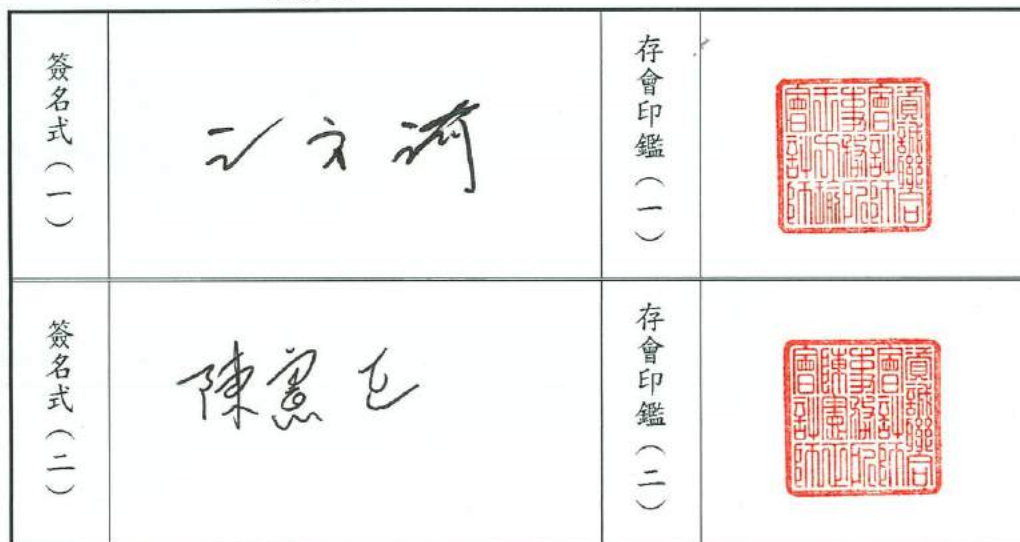 簽名式(一)
王方瑜
存會印鑑(一)
資誠聯合
會計師
事務所
王方瑜
會計師
簽名式(二)
陳憲正
存會印鑑(二)
資誠聯合
會計師
事務所
陳憲正
會計師